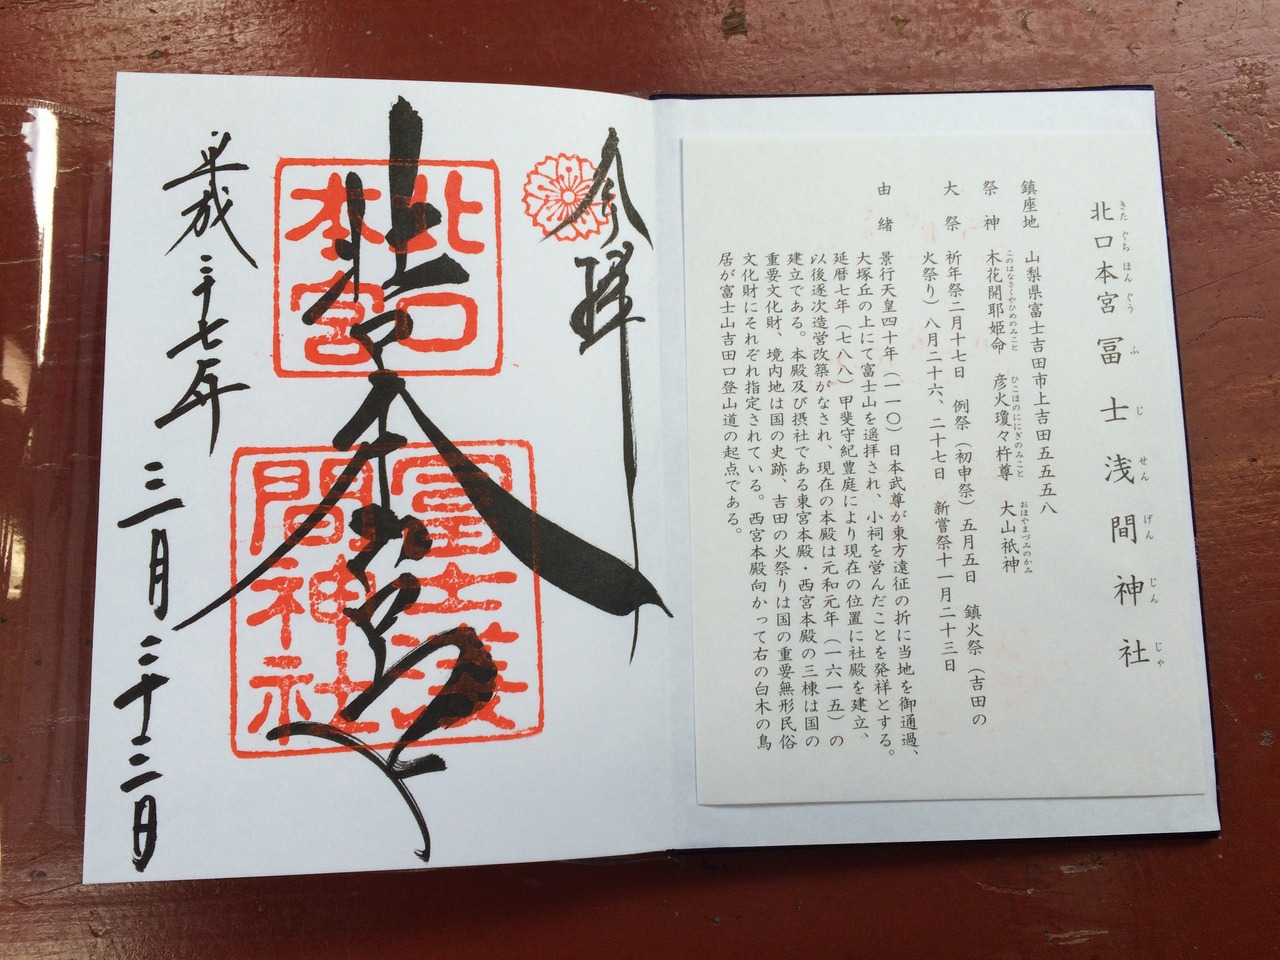 北口本宮冨士浅間神社
きたぐちほんぐうふじせんげんじんじゃ
鎮座地 山梨県富士吉田市上吉田五五五八
祭神 木花開耶姫命 彦火瓊々杵尊 大山祇神
このはなさくやひめのみこと ひこほのににぎのみこと おほやまづみのかみ
大祭 祈年祭二月十七日 例祭(初申祭)五月五日 鎮火祭(吉田の
火祭り)八月二十六、二十七日 新嘗祭十一月二十三日
由緒 景行天皇四十年(一一〇)日本武尊が東方遠征の折に当地を御通過、
大塚丘の上にて富士山を遥拝され、小祠を営んだことを発祥とする。
延暦七年(七八八)甲斐守紀豊庭により現在の位置に社殿を建立、
以後逐次造営改築がなされ、現在の本殿は元和元年(一六一五)の
建立である。本殿及び摂社である東宮本殿・西宮本殿の三棟は国の
重要文化財、境内地は国の史跡、吉田の火祭りは国の重要無形民俗
文化財にそれぞれ指定されている。西宮本殿向かって右の白木の鳥
居が富士山吉田口登山道の起点である。
奉拝
北口本宮
北口
本宮
冨士淺
間神社
平成二十七年
三月二十二日